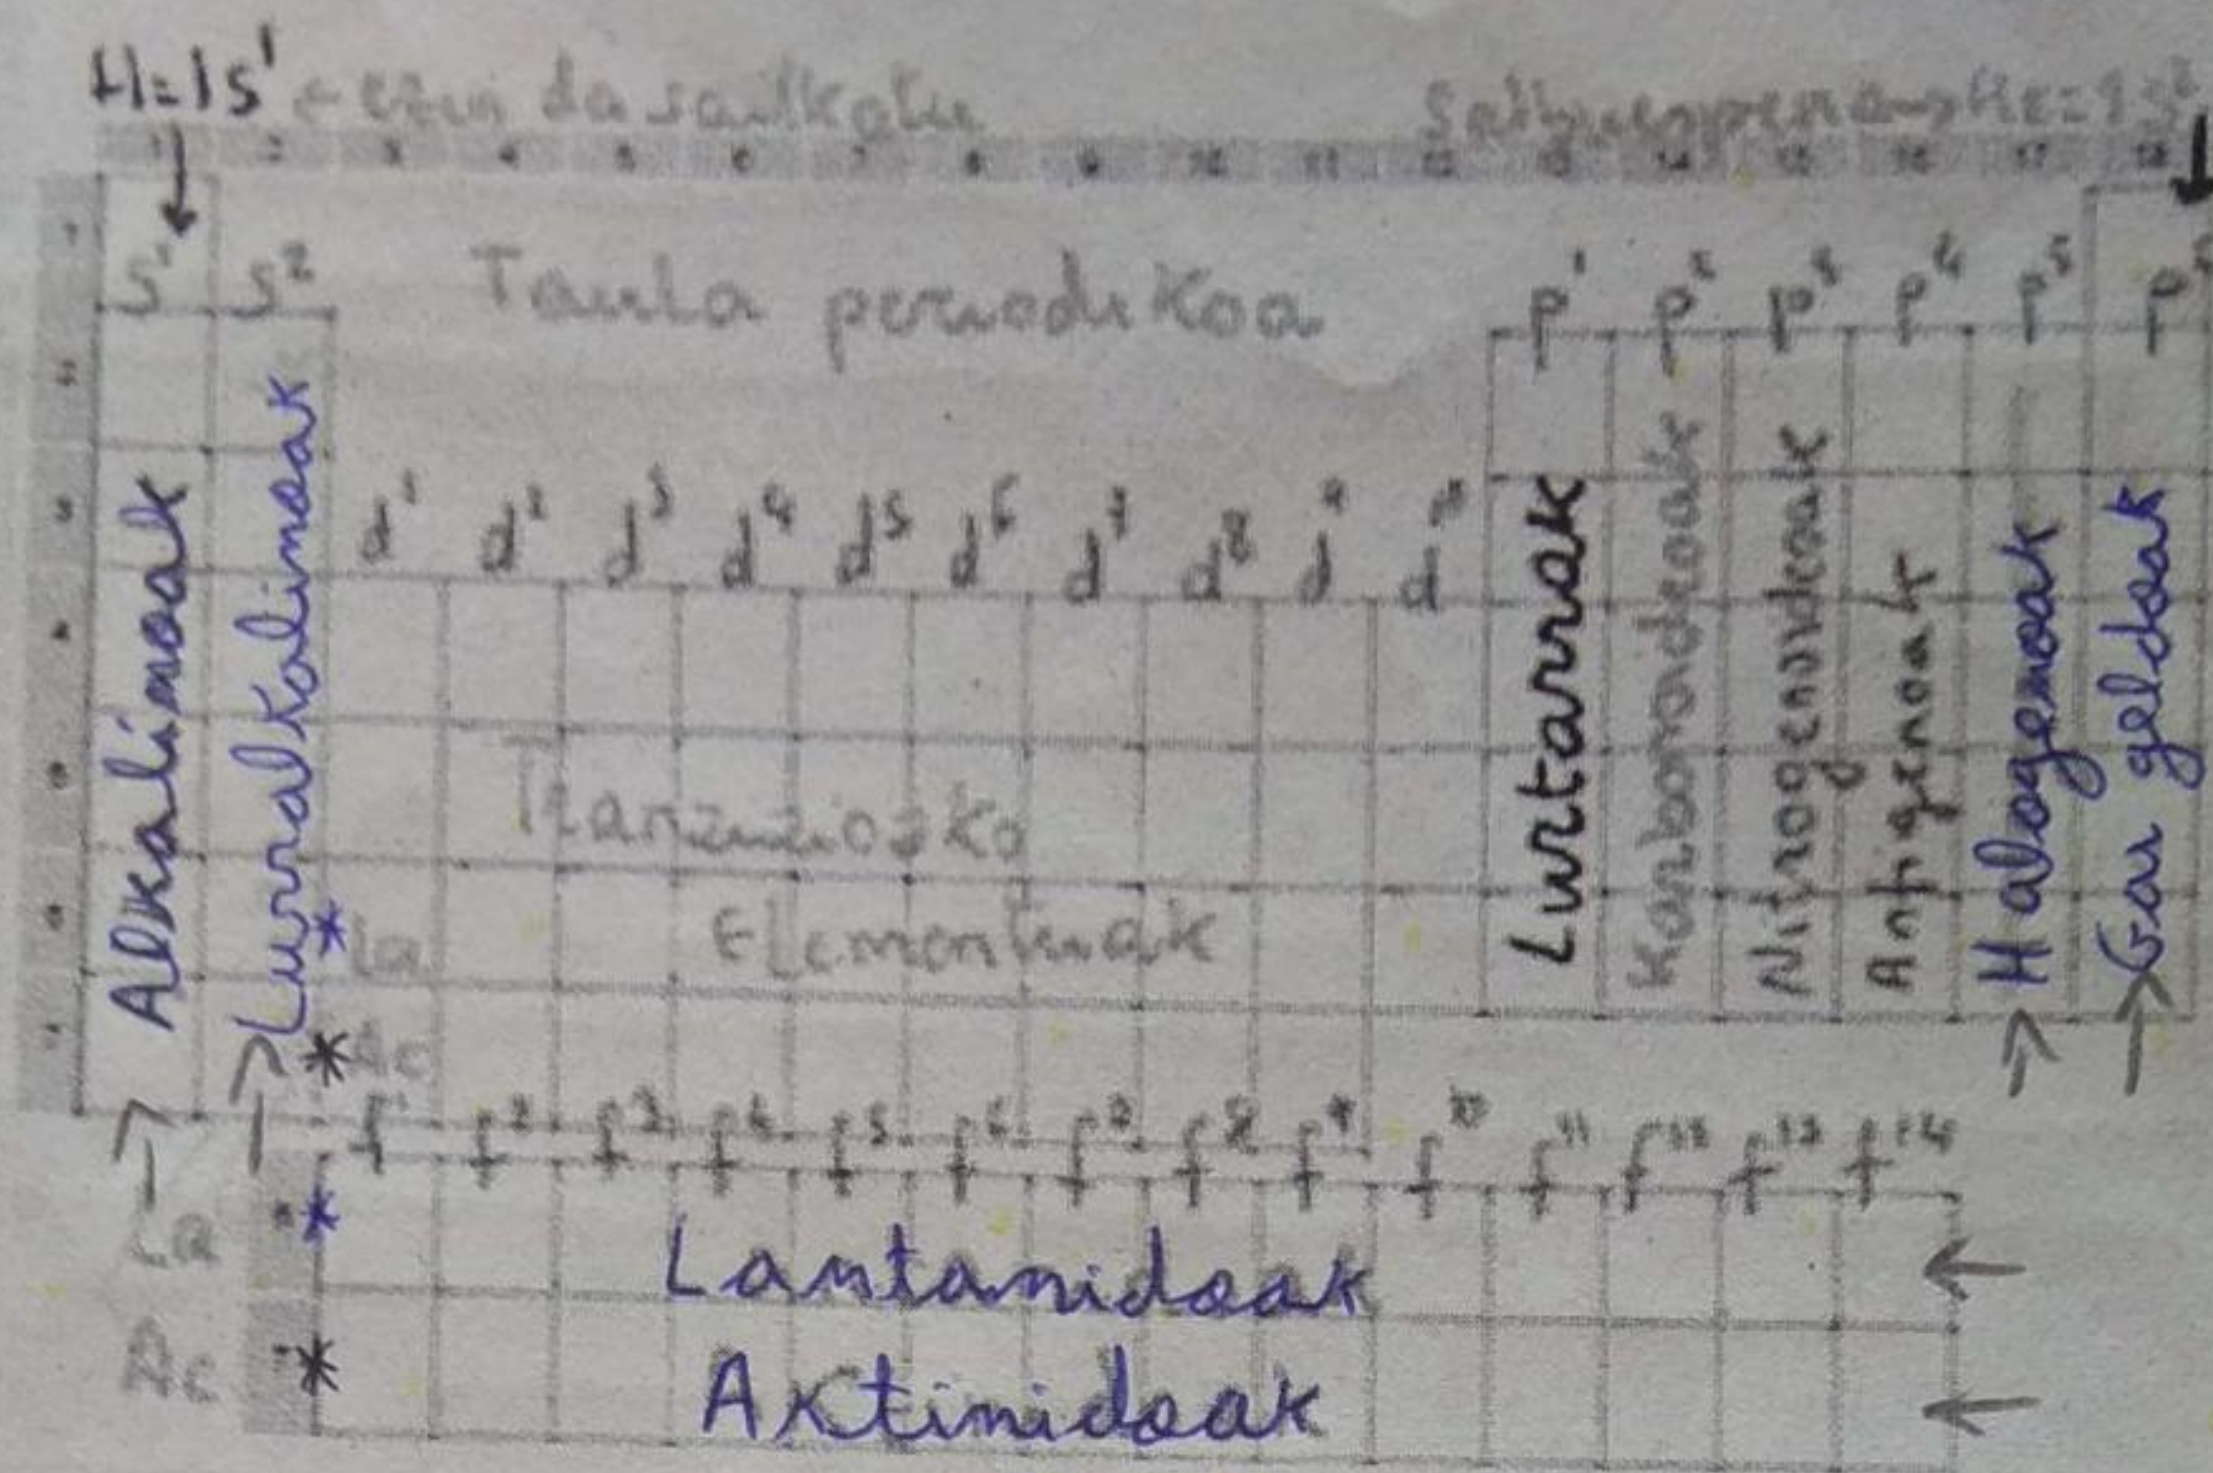 H=1s¹ ← ezin da sailkatu
Salbuespena → He=1s²
1 2 3 4 5 6 7 8 9 10 11 12 13 14 15 16 17 18
s¹ s² Taula periodikoa p¹ p² p³ p⁴ p⁵ p⁶
d¹ d² d³ d⁴ d⁵ d⁶ d⁷ d⁸ d⁹ d¹⁰
Alkalinoak
Lurralkalinoak
Tranzizioako
Elementuak
Lurtarrak
Karbonoideoak
Nitrogenoideoak
Anfigenoak
Halogenoak
Gas geldoak
* La
* Ac
f¹ f² f³ f⁴ f⁵ f⁶ f⁷ f⁸ f⁹ f¹⁰ f¹¹ f¹² f¹³ f¹⁴
La * Lantanidoak ←
Ac * Aktinidoak ←